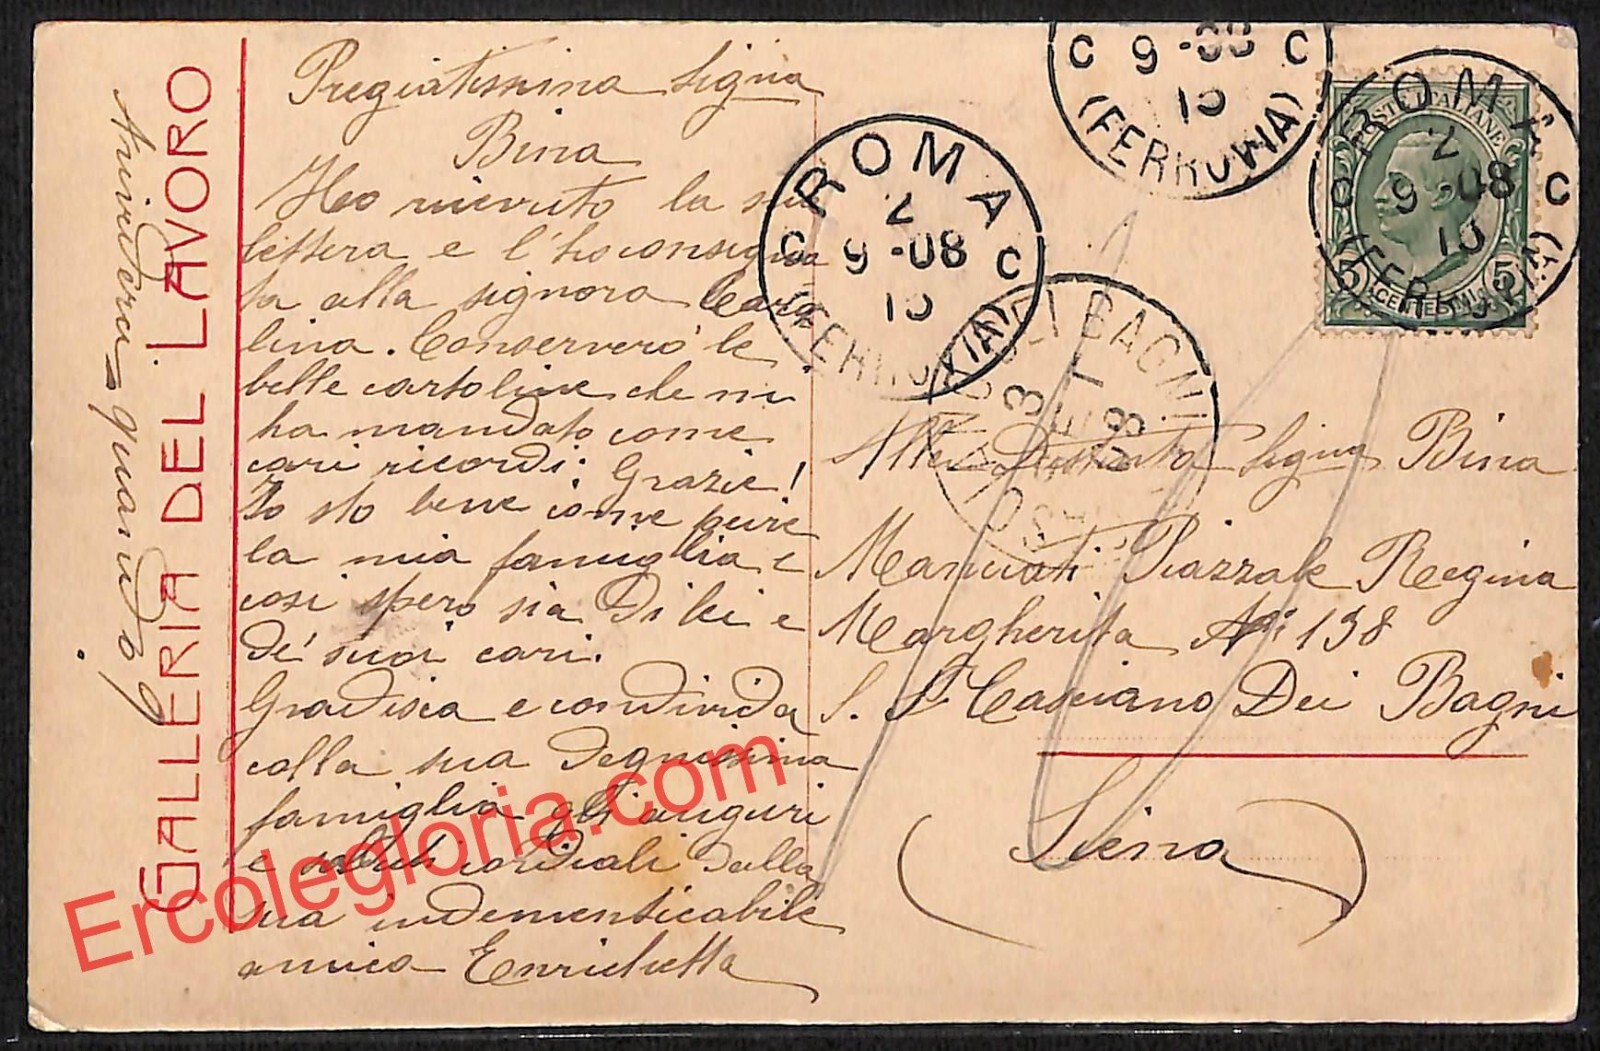 GALLERIA DEL LAVORO
Arivederci quando?
Pregiatissima Signa
Bina
Ho ricevuto la sua
lettera e l'ho consegna
ta alla signora Caro
lina. Conserverò le
belle cartoline che mi
ha mandato come
cari ricordi. Grazie!
Io sto bene come pure
la mia famiglia e
così spero sia Di lei e
de' suoi cari.
Gradisca e condivida
colla sua degnissima
famiglia gli auguri
e saluti cordiali dalla
sua indementicabile
amica Enrichetta
9-08 10
C C
(FERROVIA)
ROMA
2
9-08
10
C C
(FERROVIA)
ROMA
2
9-08
10
C C
(FERROVIA)
POSTE ITALIANE
5 CENTESIMI 5
DEI BAGNI
3 SET 08
Alla Signa Bina
Manciati Piazzale Regina
Margherita N 138
S. Casciano Dei Bagni
(Siena)
Ercolegloria.com